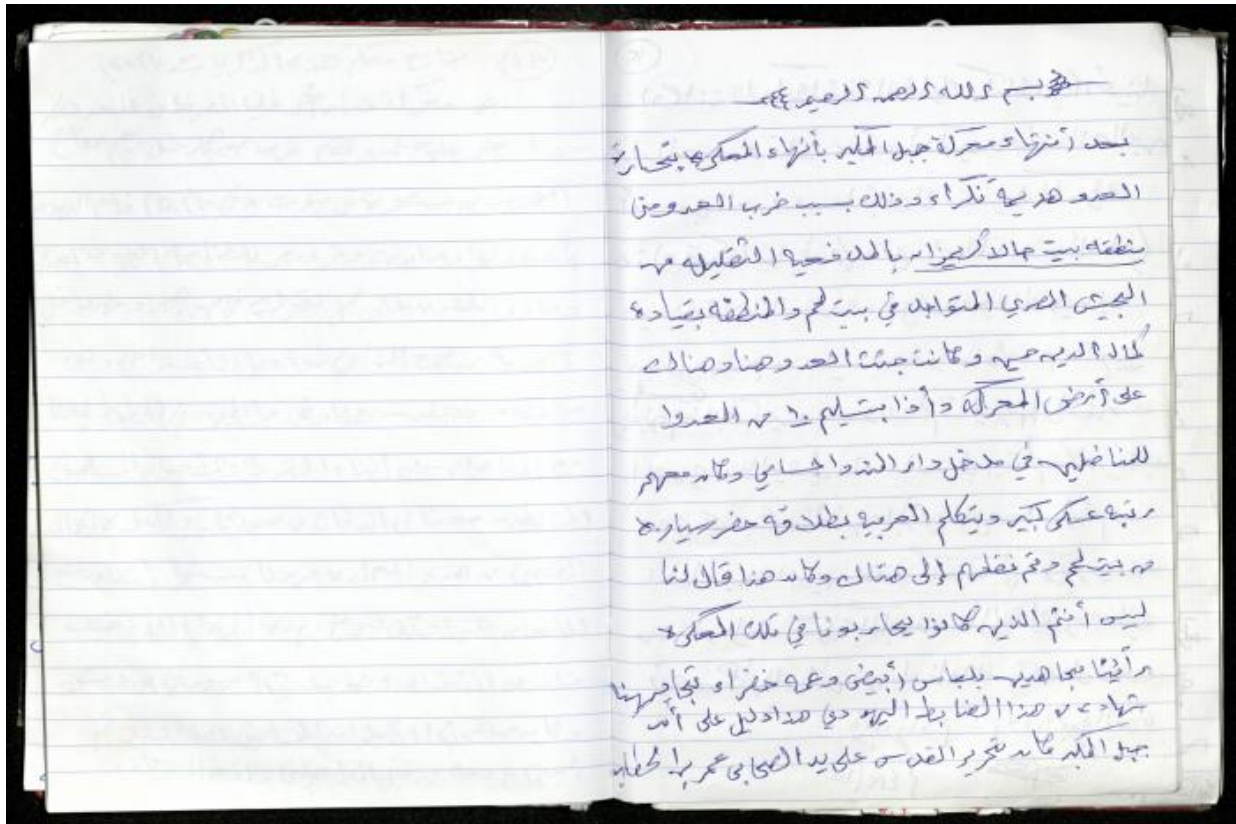 بسم الله الرحمن الرحيم
بعد أنتهاء معركة جبل المكبر بأنهاء المعكره بخسارة
العدو هديمة نكراء وذلك بسبب ضرب العدو من
منطقه بيت جالا كريمزان بالمدفعيه الثقليله من
الجيش المصري المتواجد في بيت لحم والمنطقه بقيادة
كمال الدين حسين وكانت جثث العدو هنا وهناك
على أرض المعركه وأذا بتسليم ١٠ من العدوا
للمناضلين في مدخل دار وكان معهم
رتبة عسكري كبير ويتكلم العربيه بطلاقه حضر سياره
من بيت لحم وتم نقلهم إلى هناك وكان هنا قال لنا
ليس أنتم الذين كانوا يحاربونا في تلك المعكره
رأينا مجاهدين بلباس أبيض وعمه خضراء
شهادة من هذا الضابط اليهودي هذا دليل على أن
جبل المكبر كان تحرير القدس على يد الصحابي عمر بن الخطاب